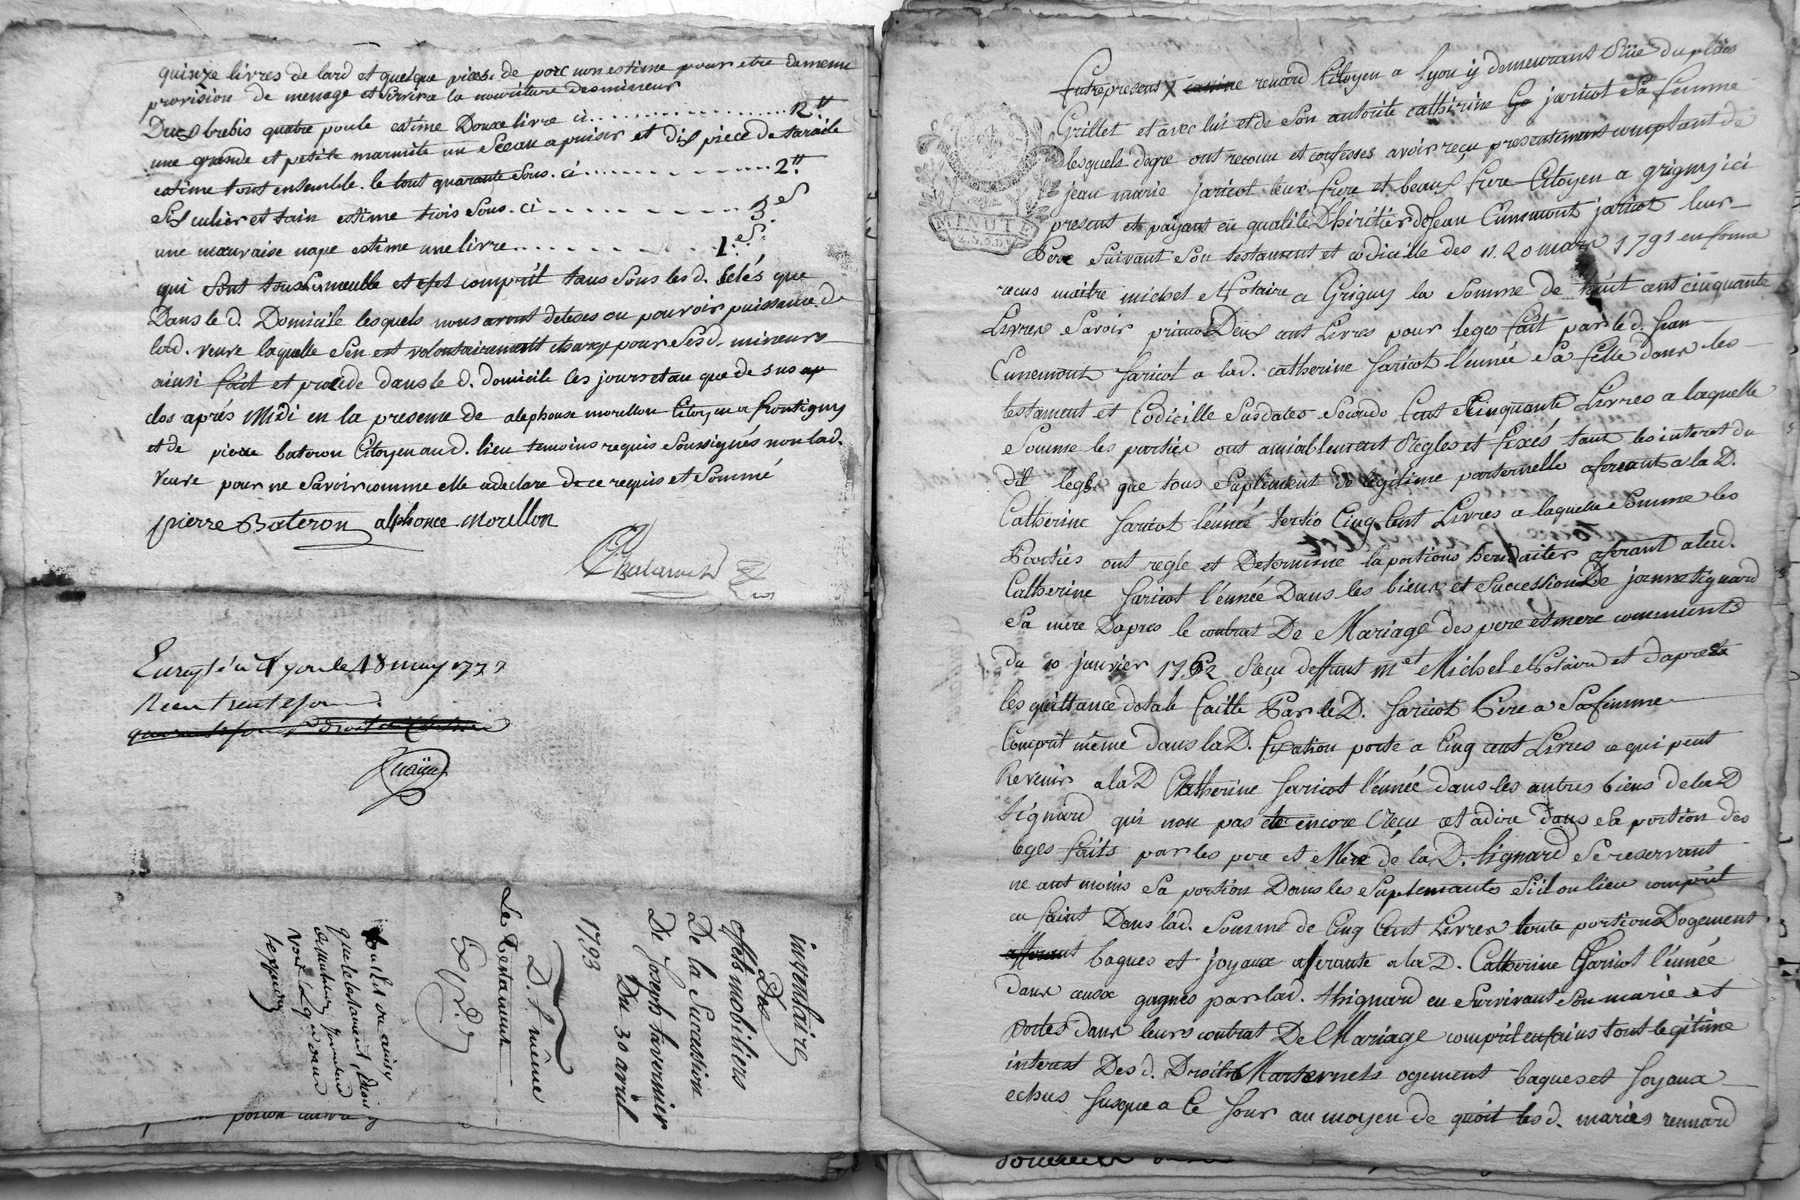 quinze livres de lard et quelque pieces de porc non estime pour etre de menu
provision de menage et servira la nouriture des mineur
Deus brebis quatre poule estime Douze livre ci .......... 12.tt
une grande et petite marmite un Seau a puiser et dis piece de
estime tout ensemble le tout quarante sous. ci ........ 2.tt
Sis culier et tain estime trois sous. ci ........ 3.s
une mauvaise nape estime une livre ........ 1.
qui sont tous les meuble et efet comprit tous sous les d. selés que
Dans le d. Domicile lesquels nous avont deleses ou pouvoir puissance de
lad. veuve laquelle s'en est volontairement charge pour ses d. mineurs
ainsi fait et procede dans le d. domicile les jours et an que de sus
clos aprés Midi en la presence de alephonse morellon Citoyen a frontigny
et de pierre bateron Citoyen au d. lieu temoins requis soussignés non lad.
veuve pour ne savoir comme elle a declare de ce requis et sommé
pierre Bateron alphonce morellon
Enregté a Lyon le 18 may 1793
Recu trente sous
inventaire
Des
effets mobiliers
De la Succession
De Joseph tavernier
Du 30 avril
1793
D. t même
Le Testament
que le testament
MINUTE
Entre present renard Citoyen a Lyon y demeurant Rüe du plas
Grillet et avec lui et de son autorite catherine jaricot sa femme
lesquels de gre ont reconu et confesses avoir reçu presentement comptant de
jean marie jaricot leur frere et beaus frere Citoyen a grigny ici
present et payant en qualité D'hiritier de Jean Cunemont jaricot leur
Pere suivant son testament et codicille des 11. 20 mars 1791 en forme
recus maitre michel Notaire a Grigny la somme de huit cent cinquante
Livres savoir primo Deus cent Livres pour leges fait par le d. Jean
Cunemont Jaricot a la d. catherine Jaricot l'ennée sa fille dans les
testament et Codicille susdates secundo Cent Cinquante Livres a laquelle
somme les parties ont amiablement Regles et fixés tant les interet du
dit legs que tous suplement de legitime paternelle aferant a la D.
Catherine Jaricot l'ennée tertio Cinq Cent Livres a laquelle somme les
Parties ont regle et Determine la portions aferant a la d.
Catherine Jaricot l'ennée Dans les bieux et succession De jeanne tignard
sa mere D'apres le contrat De Mariage des pere et mere communs
du 10 janvier Recu deffunt me Michel Notaire et d'apres
les quittance dotale faitte Par le D. Jaricot Pere a sa femme
Comprit même dans la D. fixation porte a Cinq cent Livres ce qui peut
Revenir a la D Catherine Jaricot l'ennée dans les autres biens de la D
tignard qui non pas ete encore Recu cet a dire dans sa portion des
leges faits par les pere et Mere de la D. tignard se reservant
ne ant moins sa portion Dans les suplements s'il ou lieu comprit
en faint Dans lad. somme de Cinq Cent Livres toute portions D'ogement
bagues et joyaux aferante a la D. Catherine Jaricot l'ennée
dans ceux gagnes par lad. thignard en survivant son marie et
portes dans leurs contrat De Mariage comprit enfains tout legitime
interest Des d. Droits Maternels ogement bagues et joyaux
echus jusque a ce jour au moyen de quoit les d. maries rennard